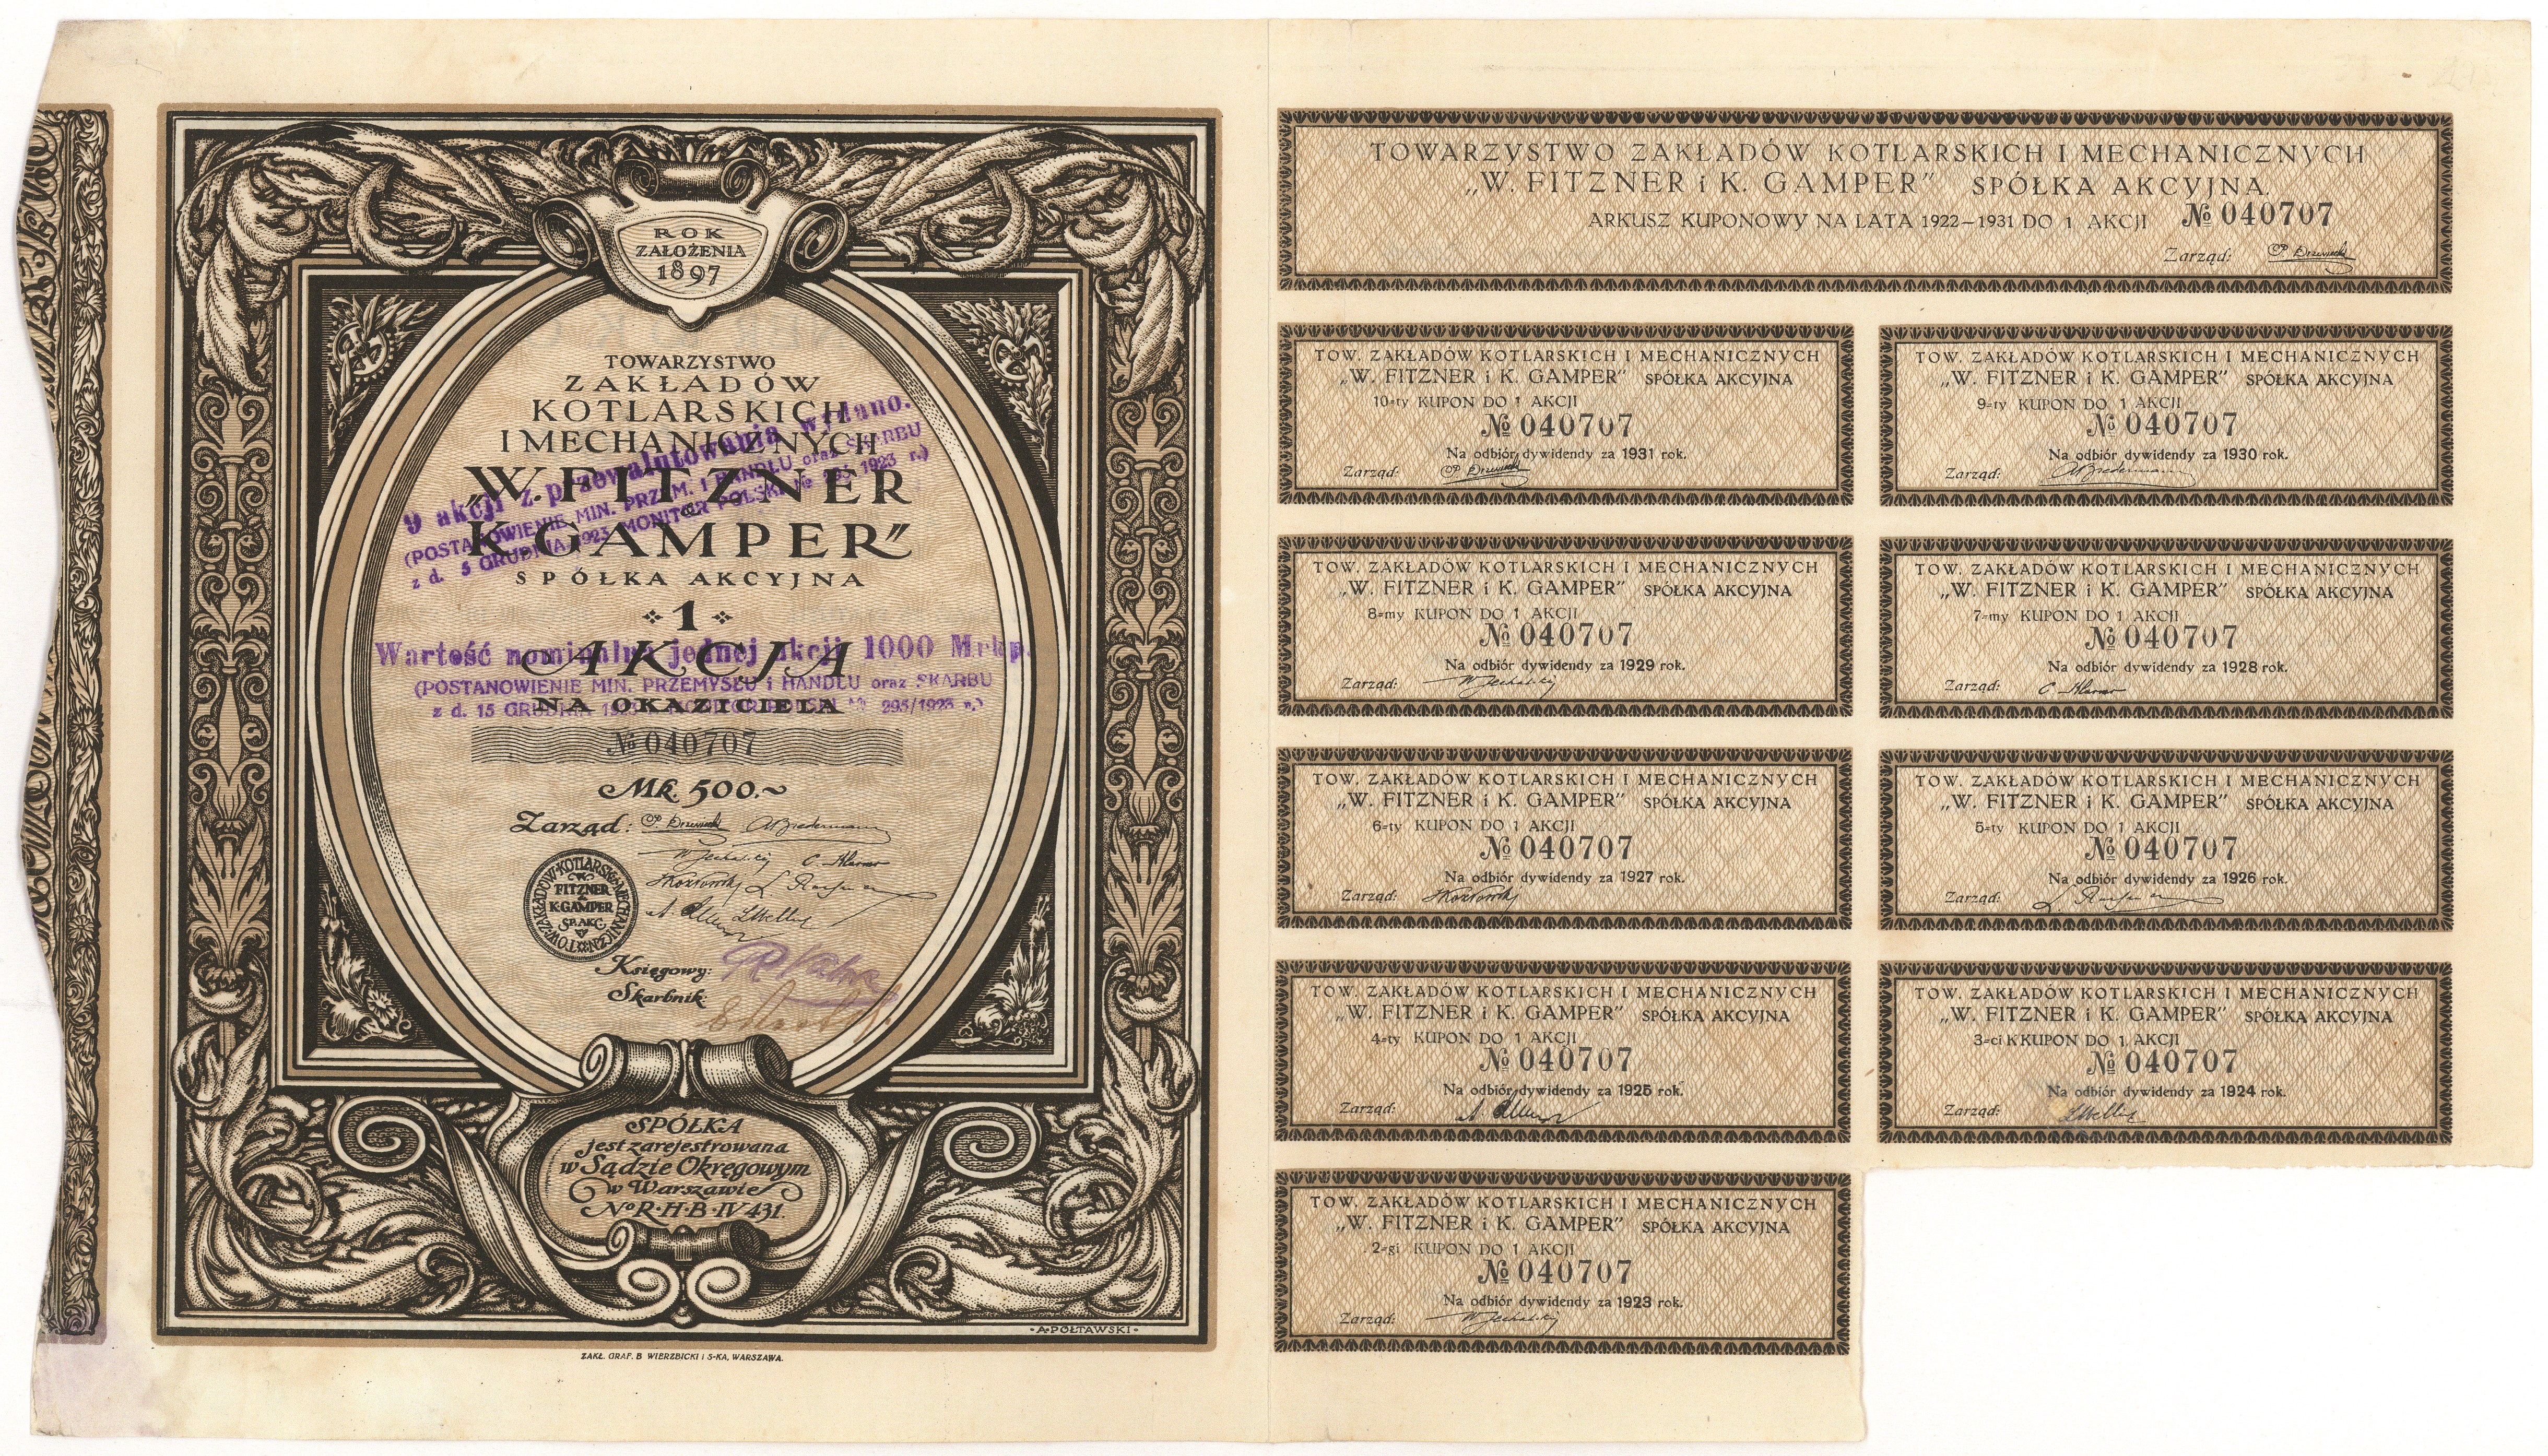 ROK
ZAŁOŻENIA
1897
TOWARZYSTWO
ZAKŁADÓW
KOTLARSKICH
I MECHANICZNYCH
„W. FITZNER
i
K. GAMPER”
SPÓŁKA AKCYJNA
1
AKCJA
NA OKAZICIELA
№ 040707
Mk. 500.~
Zarząd:
TOW. ZAKŁADÓW KOTLARSK. i MECHANICZN.
W.
FITZNER
&
K. GAMPER
SP. AKC.
Księgowy:
Skarbnik:
9 akcji z przewalutowania wydano.
(POSTANOWIENIE MIN. PRZEM. I HANDLU oraz SKARBU
z d. 5 GRUDNIA 1923 MONITOR POLSKI № 295/1923 r.)
Wartość nominalna jednej akcji 1000 Mrkp.
(POSTANOWIENIE MIN. PRZEMYSŁU i HANDLU oraz SKARBU
z d. 15 GRUDNIA 1923 MONITOR POLSKI № 295/1923 r.)
SPÓŁKA
jest zarejestrowana
w Sądzie Okręgowym
w Warszawie
№ R·H·B·IV 431.
·A·PÓŁTAWSKI·
ZAKŁ. GRAF. B WIERZBICKI i S-KA, WARSZAWA.
TOWARZYSTWO ZAKŁADÓW KOTLARSKICH I MECHANICZNYCH
„W. FITZNER i K. GAMPER” SPÓŁKA AKCYJNA.
ARKUSZ KUPONOWY NA LATA 1922–1931 DO 1 AKCJI № 040707
Zarząd:
TOW. ZAKŁADÓW KOTLARSKICH I MECHANICZNYCH
„W. FITZNER i K. GAMPER” SPÓŁKA AKCYJNA
10-ty KUPON DO 1 AKCJI
№ 040707
Na odbiór dywidendy za 1931 rok.
Zarząd:
TOW. ZAKŁADÓW KOTLARSKICH I MECHANICZNYCH
„W. FITZNER i K. GAMPER” SPÓŁKA AKCYJNA
9-ty KUPON DO 1 AKCJI
№ 040707
Na odbiór dywidendy za 1930 rok.
Zarząd:
TOW. ZAKŁADÓW KOTLARSKICH I MECHANICZNYCH
„W. FITZNER i K. GAMPER” SPÓŁKA AKCYJNA
8-my KUPON DO 1 AKCJI
№ 040707
Na odbiór dywidendy za 1929 rok.
Zarząd:
TOW. ZAKŁADÓW KOTLARSKICH I MECHANICZNYCH
„W. FITZNER i K. GAMPER” SPÓŁKA AKCYJNA
7-my KUPON DO 1 AKCJI
№ 040707
Na odbiór dywidendy za 1928 rok.
Zarząd:
TOW. ZAKŁADÓW KOTLARSKICH I MECHANICZNYCH
„W. FITZNER i K. GAMPER” SPÓŁKA AKCYJNA
6-ty KUPON DO 1 AKCJI
№ 040707
Na odbiór dywidendy za 1927 rok.
Zarząd:
TOW. ZAKŁADÓW KOTLARSKICH I MECHANICZNYCH
„W. FITZNER i K. GAMPER” SPÓŁKA AKCYJNA
5-ty KUPON DO 1 AKCJI
№ 040707
Na odbiór dywidendy za 1926 rok.
Zarząd:
TOW. ZAKŁADÓW KOTLARSKICH I MECHANICZNYCH
„W. FITZNER i K. GAMPER” SPÓŁKA AKCYJNA
4-ty KUPON DO 1 AKCJI
№ 040707
Na odbiór dywidendy za 1925 rok.
Zarząd:
TOW. ZAKŁADÓW KOTLARSKICH I MECHANICZNYCH
„W. FITZNER i K. GAMPER” SPÓŁKA AKCYJNA
3-ci KKUPON DO 1 AKCJI
№ 040707
Na odbiór dywidendy za 1924 rok.
Zarząd:
TOW. ZAKŁADÓW KOTLARSKICH I MECHANICZNYCH
„W. FITZNER i K. GAMPER” SPÓŁKA AKCYJNA
2-gi KUPON DO 1 AKCJI
№ 040707
Na odbiór dywidendy za 1923 rok.
Zarząd: